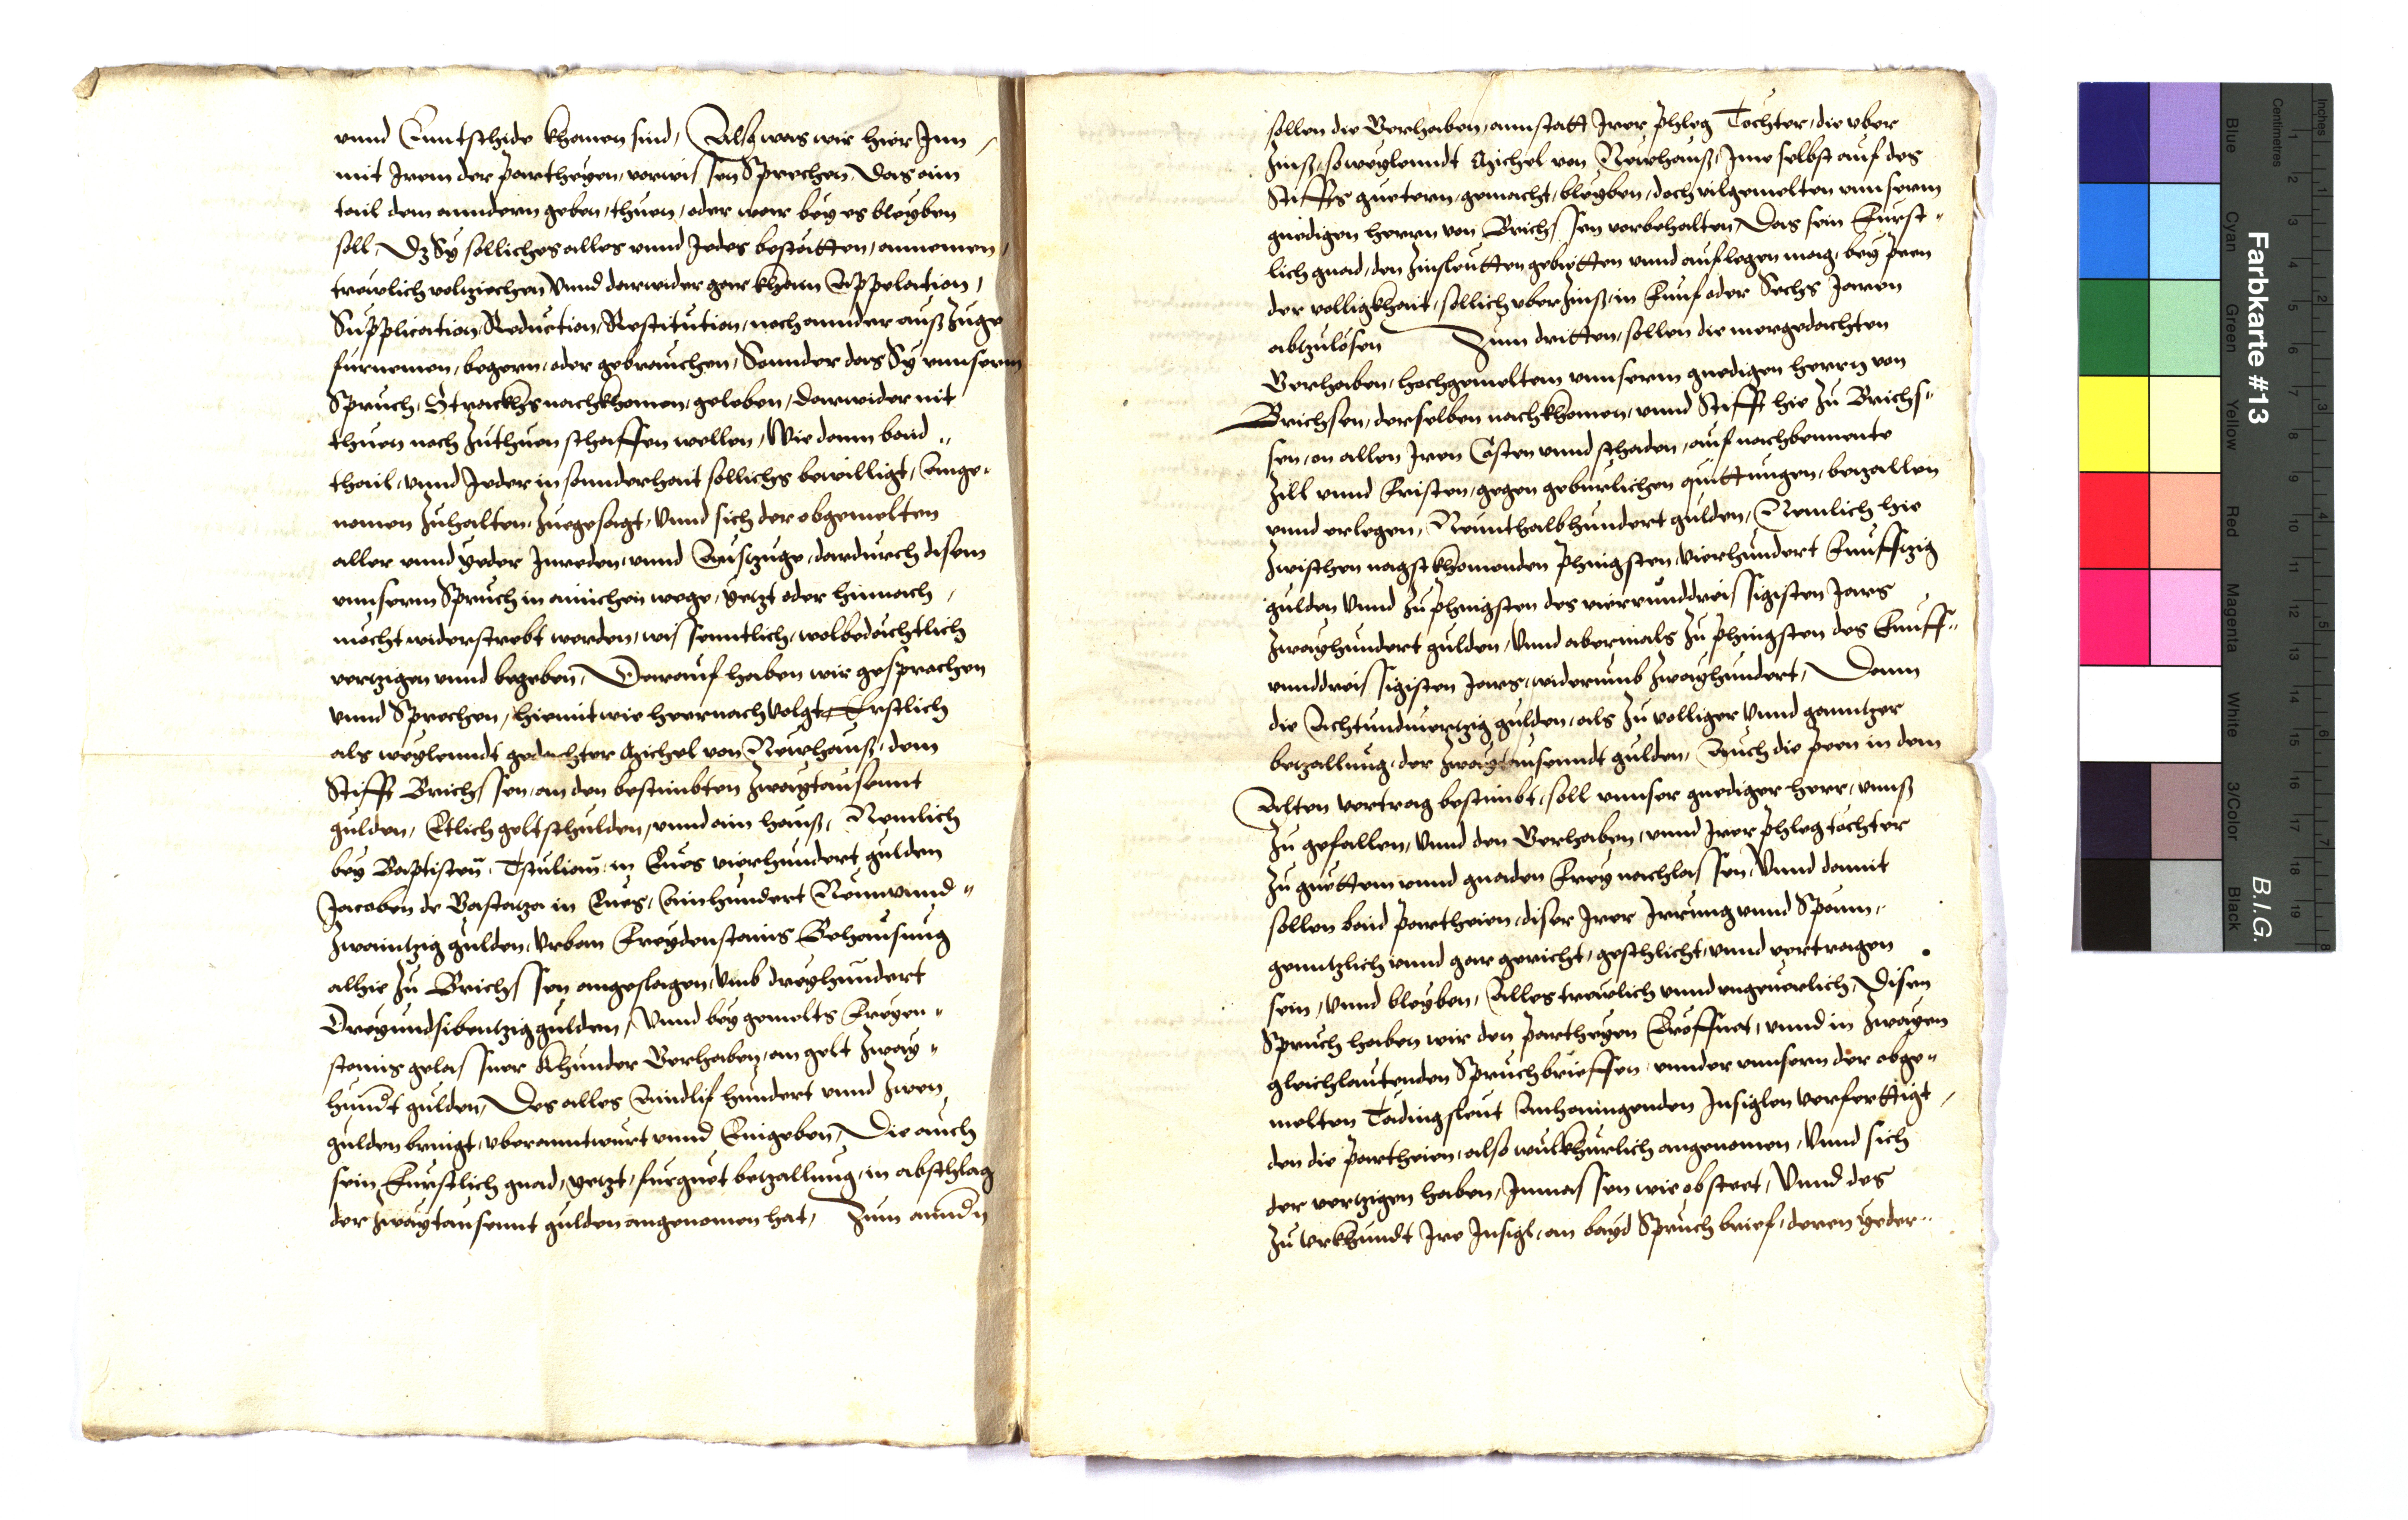 vnnd Enntschide khomen sind, Also was wir hier Inn
mit Irem der partheyen, vorwissen Sprechen, Das ain
tail dem anndern geben, thuen, oder war bey es bleyben
soll, Dz Sy solliches alles vnnd Jedes bestätten, annemen,
trewlich voltziechen Vnnd darwider gar khain Appelation,
Supplication, Reduction, Restitution, noch annder ausszuge
furnemen, begern, oder gebrauchen, Sonnder das Sy vnnserm
Spruch, Strackhs nachkhomen, geleben, darwider nit
thuen noch zuthuen schaffen wellen, Wie dann baid
thail, vnnd Jeder in sonnderhait sollichs bewilligt, Ange„
nomen zuhalten, zuegesagt, Vnnd sich der obgemelten
aller vnnd yeder Inreden, vnnd Ausszuge, dardurch disem
vnnserm Spruch in ainichen wege, yetzt oder hinnach,
mocht widerstrebt werden, wissenntlich, wolbedächtlich
vertzigen vnnd begeben, Darauf haben wir gesprochen
vnnd Sprechen, hiemit wie heernach volgt, Erstlich
als weylenndt gedachter Michel von Newhauss, dem
Stifft Brichssen, an den bestimbten zwaytausennt
gulden, Etlich geltschulden, vnnd ain hauss, Nemlich
bey Baptisten, in Eues vierhundert gulden
Jacoben de Bastatza in Eues, Ainhundert Neunvnnd„
zwaintzig gulden, Vrban Freydenstains Behausung
alhie zu Brichssen angeslagen, vmb dreyhundert
Dreyundsibentzig gulden, Vnnd bey gemelts Freyen„
stains gelassner Khunder Gerhaben, an gelt zway„
hundt gulden, Des alles Aindlif hundert vnnd zwen
gulden bringt, vberanntwurt vnnd Eingeben, Die auch
sein Furstlich gnad, yetzt, fur guet betzallung, in abschlag
der zwaytausennt gulden angenomen hat, Zum annd'n
sollen die Gerhaben, annstatt Irer phleg Tochter, die vber
zinss, so weylenndt Michel von Newhauss, Ime selbst auf des
Stiffts guetern, gemacht, bleyben, doch vilgemelten vnnserm
gnedigen herrn von Brichssen vorbehalten, Das sein Furst„
lich gnad, den zinsleutten gebietten vnnd auflegen mag, bey peen
der volligkhait, sollich vberzinss, in Funf oder Sechs Jaren
abtzulosen Zum dritten, sollen die mergedachten
Gerhaben, hochgemeltem vnnserm gnedigen herrn von
Brichsen, derselben nachkhomen, vnnd Stifft hie zu Brichs„
sen, on allen Iren Costen vnnd schaden, auf nachbennente
zill vnnd Fristen, gegen geburlichen quittungen, betzallen
vnnd erlegen, Neunthalbhundert gulden, Nemlich hie
zwischen nagstkhomenden phingsten, vierhundert Funfftzig
gulden Vnnd zu phingsten des vierunddreissigisten Jars
zwayhundert gulden, Vnnd abermals zu phingsten des Funff„
vnnddreissigisten Jars, widerumb zwayhundert, Dann
die Achtundviertzig gulden, als zu volliger vnnd ganntzer
betzallung, der zwaytausenndt gulden, Auch die peen in dem
Alten vertrag bestimbt, soll vnnser gnediger herr, vnnss
zu gefallen, Vnnd den Gerhaben, vnnd Irer phlegtochter
zu guettem vnnd gnaden Frey nachlassen, Vnnd damit
sollen baid partheien, diser Irer Irrung vnnd Spänn,
genntzlich vnnd gar gericht, geschlicht, vnnd vertragen
sein, Vnnd bleyben, Alles trewlich vnnd vngeuerlich, Disen
Spruch haben wir den partheyen Eröffnet, vnnd in zwayen
gleichlautenden Spruchbrieffen, vnnder vnnsern der obge„
melten Tädingsleut Anhanngenden Insiglen verferttigt,
den die partheien, also wilkhurlich angenomen, Vnnd sich
der vertzigen haben, Inmassen wie obsteet, Vnnd des
zu vrkhundt Ire Insigl, an bayd Spruch brief, deren yeder„
Farbkarte #13
B.I.G.
Inches
Centimetres
Blue Cyan Green Yellow Red Magenta White 3/Color Black